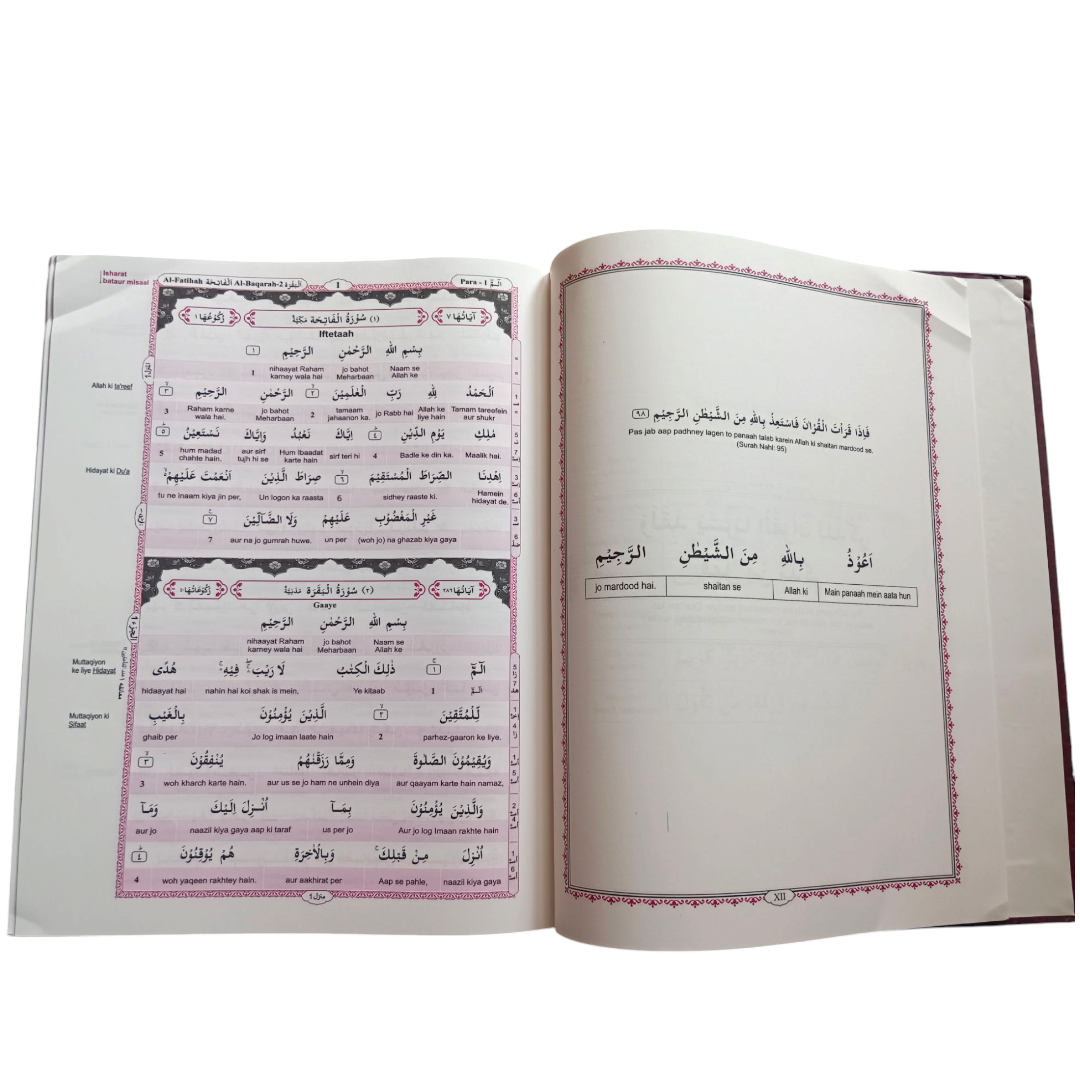 فَاِذَا قَرَاْتَ الْقُرْاٰنَ فَاسْتَعِذْ بِاللّٰهِ مِنَ الشَّيْطٰنِ الرَّجِيْمِ ٩٨
Pas jab aap padhney lagen to panaah talab karein Allah ki shaitan mardood se.
(Surah Nahl: 95)
اَعُوْذُ بِاللّٰهِ مِنَ الشَّيْطٰنِ الرَّجِيْمِ
Main panaah mein aata hun Allah ki shaitan se jo mardood hai.
XII
Isharat
bataur misaal
Para - 1 الٓمّٓ 1 Al-Baqarah-2 اَلْبَقَرَة Al-Fatihah اَلْفَاتِحَة
اٰيَاتُهَا ٧ (١) سُوْرَةُ الْفَاتِحَة مَكِّيَّةٌ رُكُوْعُهَا ١
Iftetaah
بِسْمِ اللّٰهِ الرَّحْمٰنِ الرَّحِيْمِ ١
Naam se Allah ke jo bahot Meharbaan nihaayat Raham karney wala hai 1
Allah ki ta'reef
اَلْحَمْدُ لِلّٰهِ رَبِّ الْعٰلَمِيْنَ ٢ الرَّحْمٰنِ الرَّحِيْمِ ٣
Tamam tareefein aur shukr Allah ke liye hain jo Rabb hai tamaam jahaanon ka. 2 jo bahot Meharbaan Raham karne wala hai. 3
مٰلِكِ يَوْمِ الدِّيْنِ ٤ اِيَّاكَ نَعْبُدُ وَاِيَّاكَ نَسْتَعِيْنُ ٥
Maalik hai. Badle ke din ka. 4 sirf teri hi Hum Ibaadat karte hain aur sirf tujh hi se hum madad chahte hain. 5
Hidayat ki Du'a
اِهْدِنَا الصِّرَاطَ الْمُسْتَقِيْمَ ٦ صِرَاطَ الَّذِيْنَ اَنْعَمْتَ عَلَيْهِمْ
Hamein hidayat de. sidhey raaste ki. 6 Un logon ka raasta tu ne inaam kiya jin per,
غَيْرِ الْمَغْضُوْبِ عَلَيْهِمْ وَلَا الضَّآلِّيْنَ ٧
(woh jo) na ghazab kiya gaya un per aur na jo gumrah huwe. 7
اٰيَاتُهَا ٢٨٦ (٢) سُوْرَةُ الْبَقَرَة مَدَنِيَّةٌ رُكُوْعَاتُهَا
Gaaye
بِسْمِ اللّٰهِ الرَّحْمٰنِ الرَّحِيْمِ
Naam se Allah ke jo bahot Meharbaan nihaayat Raham karney wala hai
Muttaqiyon
ke liye Hidayat
الٓمّٓ ١ ذٰلِكَ الْكِتٰبُ لَا رَيْبَ فِيْهِ هُدًى
الٓمّٓ 1 Ye kitaab nahin hai koi shak is mein, hidaayat hai
Muttaqiyon ki
Sifaat
لِّلْمُتَّقِيْنَ ٢ الَّذِيْنَ يُؤْمِنُوْنَ بِالْغَيْبِ
parhez-gaaron ke liye. 2 Jo log imaan laate hain ghaib per
وَيُقِيْمُوْنَ الصَّلٰوةَ وَمِمَّا رَزَقْنٰهُمْ يُنْفِقُوْنَ ٣
aur qaayam karte hain namaz, aur us se jo ham ne unhein diya woh kharch karte hain. 3
وَالَّذِيْنَ يُؤْمِنُوْنَ بِمَآ اُنْزِلَ اِلَيْكَ وَمَآ
Aur jo log Imaan rakhte hain us per jo naazil kiya gaya aap ki taraf aur jo
اُنْزِلَ مِنْ قَبْلِكَ وَبِالْاٰخِرَةِ هُمْ يُوْقِنُوْنَ ٤
naazil kiya gaya Aap se pahle, aur aakhirat per woh yaqeen rakhtey hain. 4
منزل ١